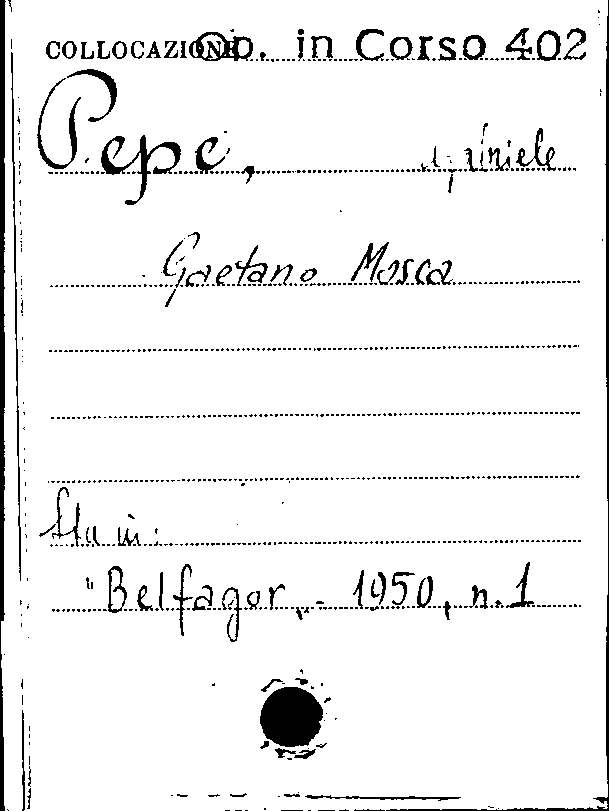 COLLOCAZIONE Op. in Corso 402
Pepe, Gabriele
Gaetano Mosca
Sta in:
"Belfagor„ - 1950, n. 1